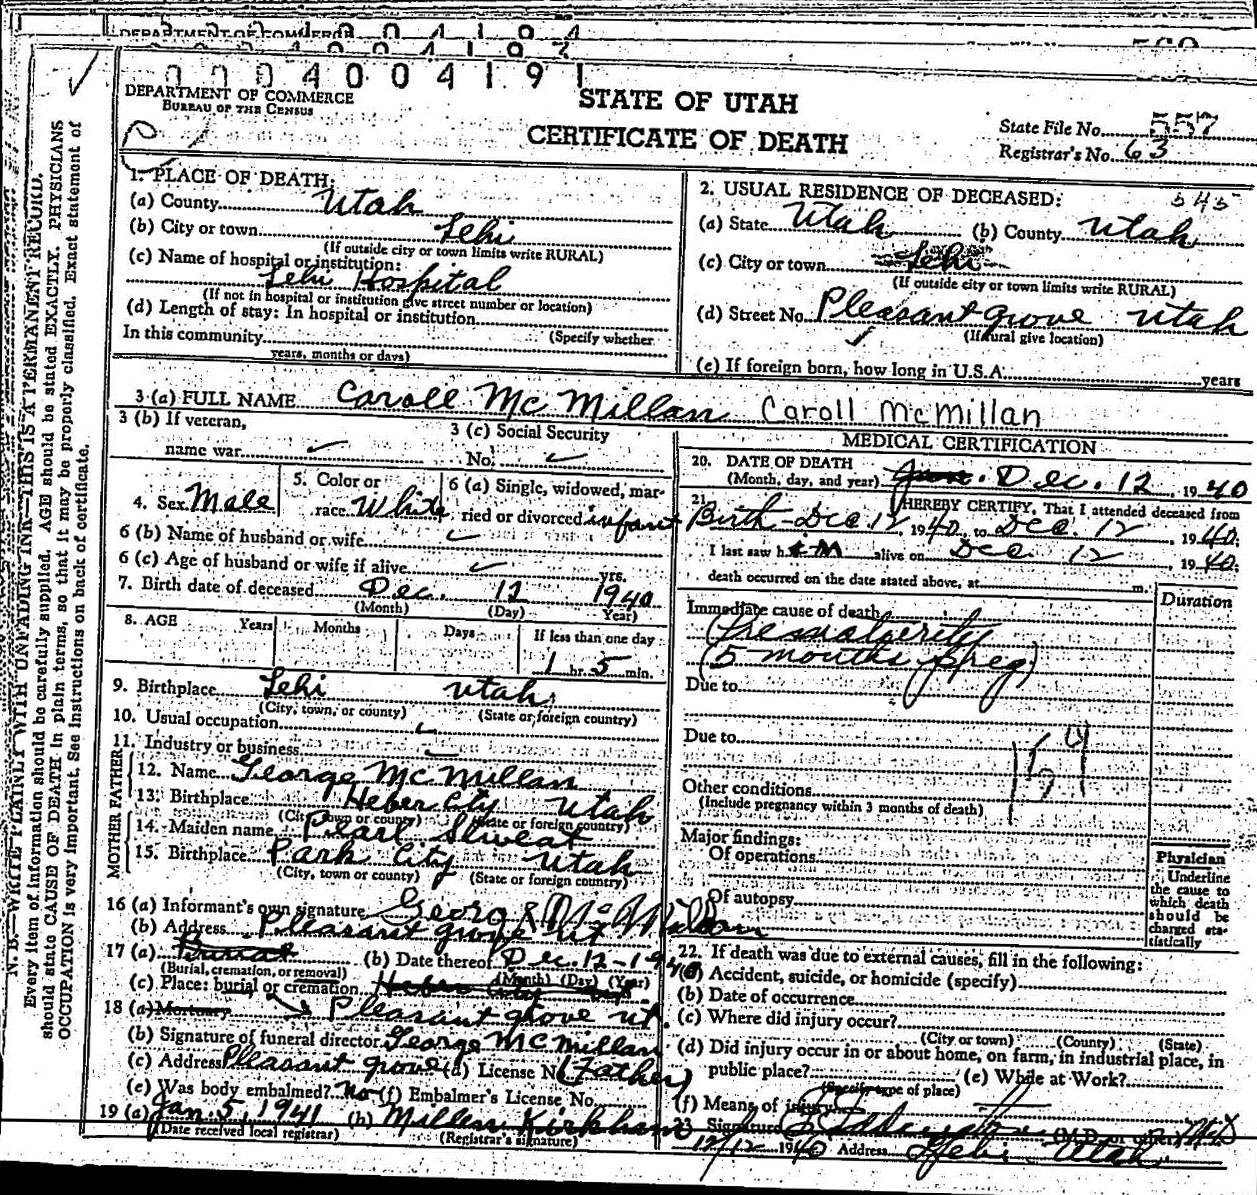 DEPARTMENT OF COMMERCE
0004004191
DEPARTMENT OF COMMERCE
BUREAU OF THE CENSUS
STATE OF UTAH
CERTIFICATE OF DEATH
State File No. 557
Registrar's No. 63
1. PLACE OF DEATH:
(a) County Utah
(b) City or town Lehi
(If outside city or town limits write RURAL)
(c) Name of hospital or institution:
Lehi Hospital
(If not in hospital or institution give street number or location)
(d) Length of stay: In hospital or institution
In this community (Specify whether
years, months or days)
2. USUAL RESIDENCE OF DECEASED: 545
(a) State Utah (b) County Utah
(c) City or town Lehi
(If outside city or town limits write RURAL)
(d) Street No. Pleasant Grove Utah
(If rural give location)
(e) If foreign born, how long in U.S.A. years
3 (a) FULL NAME Caroll McMillan Caroll McMillan
3 (b) If veteran,
name war
3 (c) Social Security
No.
4. Sex Male
5. Color or
race White
6 (a) Single, widowed, mar-
ried or divorced infant
6 (b) Name of husband or wife
6 (c) Age of husband or wife if alive yrs.
7. Birth date of deceased Dec. 12 1940
(Month) (Day) (Year)
8. AGE Years Months Days If less than one day
1 hr. 5 min.
9. Birthplace Lehi Utah
(City, town, or county) (State or foreign country)
10. Usual occupation
11. Industry or business
FATHER
12. Name George McMillan
13. Birthplace Heber City Utah
(City, town or county) (State or foreign country)
MOTHER
14. Maiden name Pearl Sweat
15. Birthplace Park City Utah
(City, town or county) (State or foreign country)
16 (a) Informant's own signature George McMillan
(b) Address Pleasant Grove Ut
17 (a) Burial (b) Date thereof Dec. 12-1940
(Burial, cremation, or removal) (Month) (Day) (Year)
(c) Place: burial or cremation Heber City
18 (a) Mortuary Pleasant Grove Ut.
(b) Signature of funeral director George McMillan
(c) Address Pleasant Grove (d) License No. (Father)
(e) Was body embalmed? No (f) Embalmer's License No.
19 (a) Jan. 5, 1941 (b) Millen Kirkham
(Date received local registrar) (Registrar's signature)
MEDICAL CERTIFICATION
20. DATE OF DEATH
(Month, day, and year) Jan. Dec. 12, 1940
21. I HEREBY CERTIFY, That I attended deceased from
Birth Dec 12, 1940, to Dec. 12, 1940;
I last saw him alive on Dec. 12, 1940;
death occurred on the date stated above, at m.
Duration
Immediate cause of death
(5 months preg)
Due to
Due to
159
Other conditions
(Include pregnancy within 3 months of death)
Major findings:
Of operations
Of autopsy
Physician
Underline
the cause to
which death
should be
charged sta-
tistically
22. If death was due to external causes, fill in the following:
(a) Accident, suicide, or homicide (specify)
(b) Date of occurrence
(c) Where did injury occur?
(City or town) (County) (State)
(d) Did injury occur in or about home, on farm, in industrial place, in
public place? (e) While at Work?
(Specify type of place)
(f) Means of injury
Signature (M.D. or other) MD
12/12 1940 Address Lehi Utah
N. B.—WRITE PLAINLY WITH UNFADING INK—THIS IS A PERMANENT RECORD.
Every item of information should be carefully supplied. AGE should be stated EXACTLY. PHYSICIANS
should state CAUSE OF DEATH in plain terms, so that it may be properly classified. Exact statement of
OCCUPATION is very important. See instructions on back of certificate.